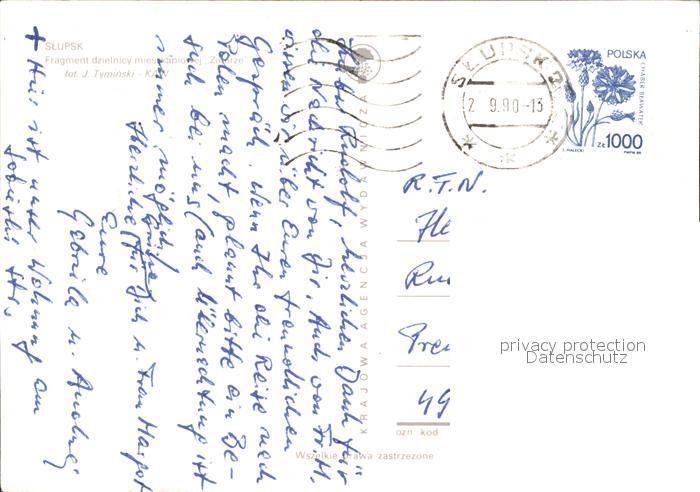 SŁUPSK
Fragment dzielnicy mieszkaniowej „Zatorze”
fot. J. Tymiński - KAW
Lieber Rudolf, herzlichen Dank für
die Nachricht von Dir. Auch von Fr. M.
wir über Euren freundlichen
Gespräch. Wenn Ihr die Reise nach
Polen macht, plant bitte ein Be-
such bei uns (auch Übernachtung ist
immer möglich)
Herzliche Grüße
für Dich u. Frau Margot
Eure
Gabriela u. Andrzej
+ Hier ist unser Wohnung am
Str.
KRAJOWA AGENCJA WYDAWNICZA
SŁUPSK 1
2 9.90-13
POLSKA
CHABER BŁAWATEK
ZŁ 1000
S. MAŁECKI
PWPW 89
R.F.N.
He
Ru
Pre
49
ozn kod
Wszelkie prawa zastrzeżone
privacy protection
Datenschutz